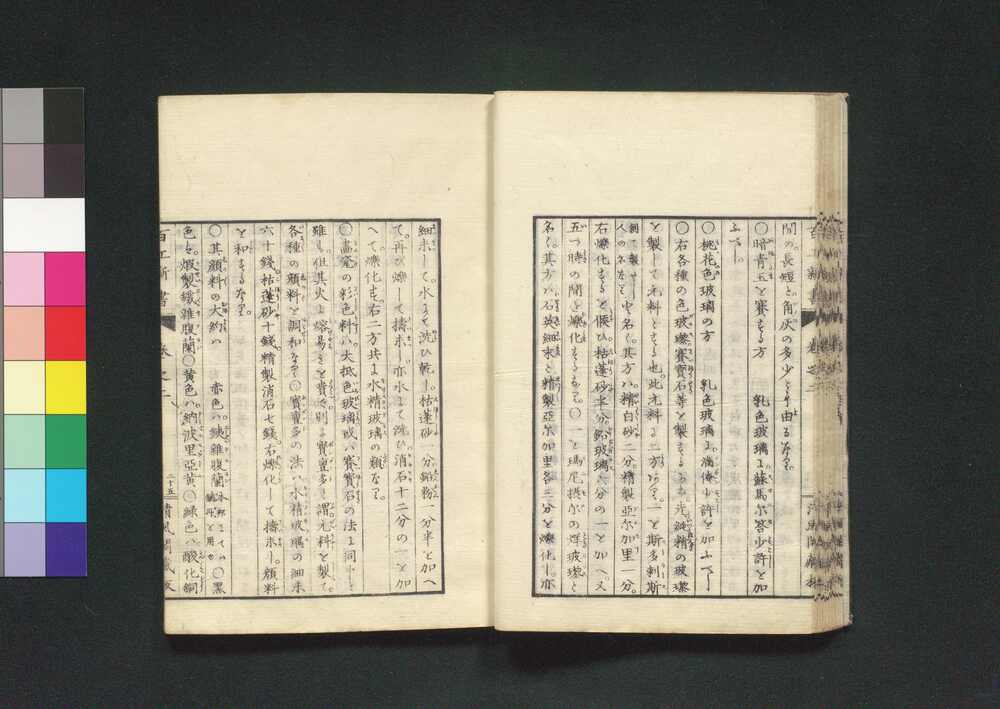 間の長短と角灰の多少とに由るなり。
〇暗青玉を賽する方 乳色玻璃に蘇馬尓答少許を加
ふべし
〇桃花色玻璃の方 乳色玻璃に満俺少許を加ふべし
〇右各種の色玻璨賽寳石等を製するにハ先純精の玻瓈
を製して元料とする也。此元料に二方あり。一を斯多刺斯
人の名なり と名く。其方ハ精白砂二分。精製亜尓加里一分。
右爍化するを候ひ枯蓬砂半分。鉛玻璃六分の一を加へ。又
五六時の間を爍化するなり。〇一を瑪尼摂尓の焊玻瓈と
名く。其方ハ石英細末と精製亜尓加里各三分を爍化し。亦
細末して。水にて洗ひ乾し。枯蓬砂一分。鉛粉一分半を加へ
て。再び爍して擣末し亦水にて洗ひ。消石十二分の一を加
へて爍化す。右二方共に水精玻璃の類なり。
〇畵瓷の彩色料ハ。大抵色玻璃或ハ賽寳石の法に同じと
雖も。但其火に熔易きを貴ぶ。別に賽寳多と謂元料を製し。
各種の顔料を調和するなり〇賽寳多の法ハ水精玻璃の細末
六十錢。枯蓬砂十錢。精製消石七錢。右爍化して擣末し。顔料
を和するなり。
〇其顔料の大約ハ 赤色ハ鉄雑腹蘭 〇黒
色ハ。煆製鐵雑腹蘭〇黄色ハ。納波里亜黄〇緑色ハ。酸化銅
百工新書 巻之二
二十五